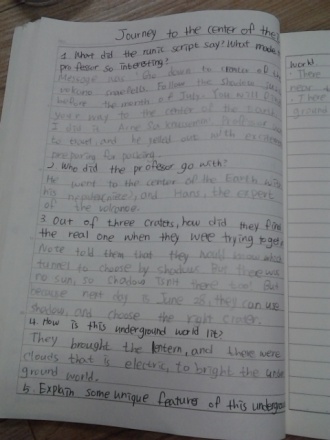 Journey to the center of the
1. What did the runic script say? What made
professor so interesting?
Message was "Go down to crater of the
volcano Follow the shadow
before the month of July. You will find
your way to the center of the Earth.
I did it. Arne Saknussemm. Professor
to travel, and he yelled out with
preparing for packing.
2. Who did the professor go with?
He went to the center of the Earth with
his nephew and Hans, the expert
of the volcano.
3. Out of three craters, how did they find
the real one when they were trying to get
Note told them that they would know which
tunnel to choose by shadow. But there was
no sun, so shadow isn't there too! But
because next day is June 28, they can use
shadow, and choose the right crater.
4. How is this underground world lit?
They brought the lentern, and there were
clouds that is electric, to bright the under
ground world.
5. Explain some unique features of this undergrou
world.
- There
near t
- There
ground